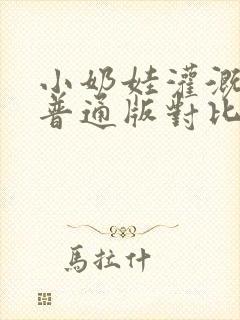 小奶娃灌溉
普通版對比
馬拉什